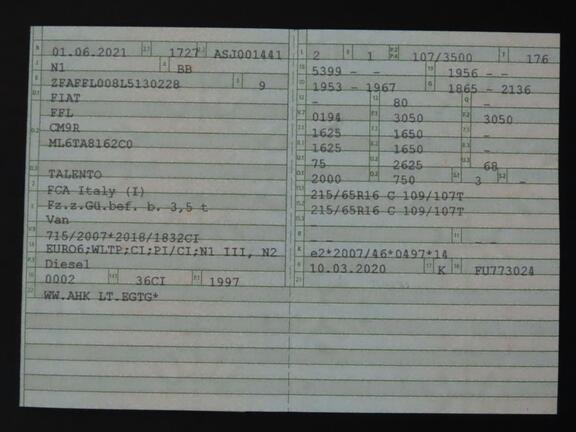 01.06.2021 1727 ASJ001441
N1 BB
ZFAFFL008L5130228 9
FIAT
FFL
CM9R
ML6TA8162C0
TALENTO
FCA Italy (I)
Fz.z.Gü.bef. b. 3,5 t
Van
715/2007*2018/1832CI
EURO6;WLTP;CI;PI/CI;N1 III, N2
Diesel
0002 36CI 1997
WW.AHK LT.EGTG*
2 1 107/3500 176
5399 - - 1956 - -
1953 - 1967 1865 - 2136
- 80 -
0194 3050 3050
1625 1650 -
1625 1650 -
75 2625 68
2000 750 3 -
215/65R16 C 109/107T
215/65R16 C 109/107T
-
- - -
e2*2007/46*0497*14
10.03.2020 K FU773024